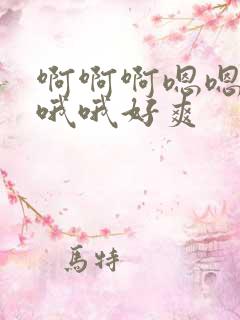 啊啊啊嗯嗯
哦哦好爽
馬特